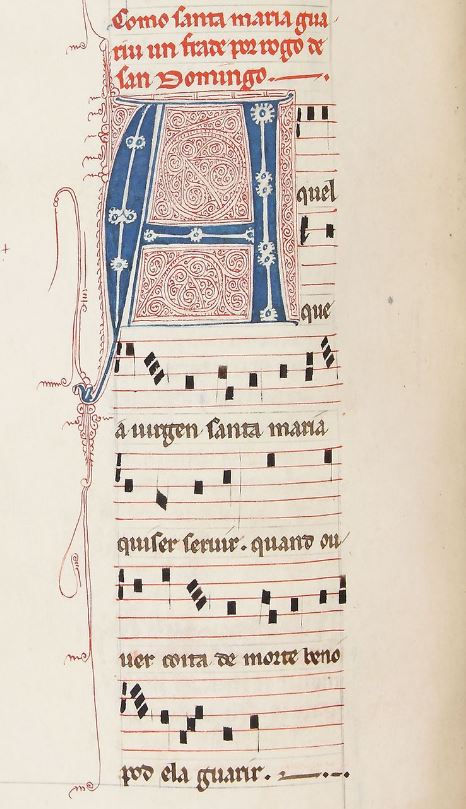 Como santa maria gua
riu un frade por rogo de
san Domingo.
Aquel
que
a uirgen santa maria
quiser seruir. quand ou
uer coita de morte beno
pod ela guarir.